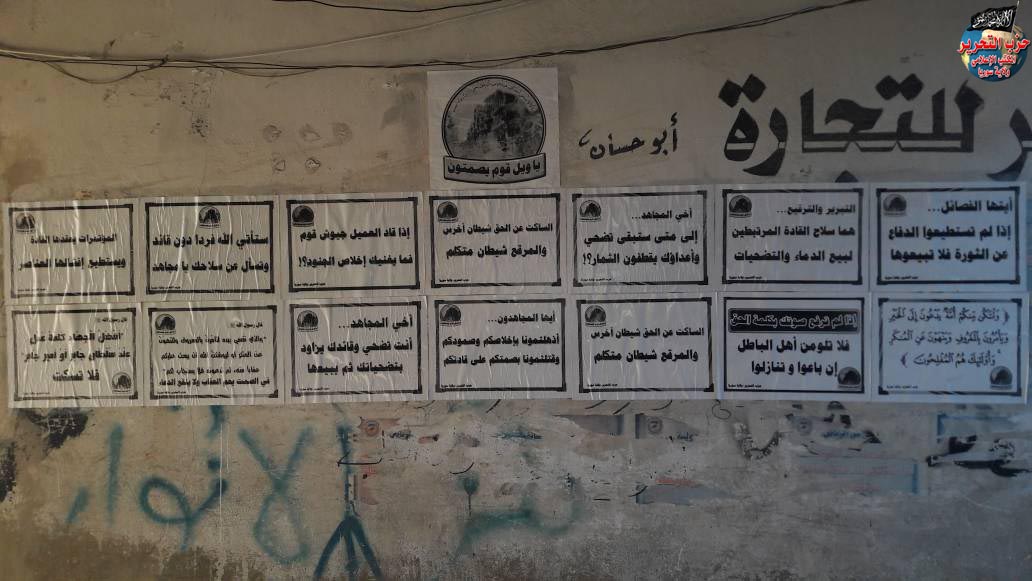 حزب التحرير
المكتب الإعلامي
ولاية سوريا
ر للتجارة
أبو حسان
يا ويل قوم يصمتون
أيتها الفصائل...
إذا لم تستطيعوا الدفاع
عن الثورة فلا تبيعوها
التبرير والترقيع...
هما سلاح القادة المرتبطين
لبيع الدماء والتضحيات
أخي المجاهد...
إلى متى ستبقى تضحي
وأعداؤك يقطفون الثمار؟!
الساكت عن الحق شيطان أخرس
والمرقع شيطان متكلم
إذا قاد العميل جيوش قوم
فما يغنيك إخلاص الجنود؟!
ستأتي الله فردا دون قائد
وتسأل عن سلاحك يا مجاهد
المؤتمرات يعقدها القادة
ويستطيع إفشالها العناصر
﴿ وَلْتَكُن مِّنكُمْ أُمَّةٌ يَدْعُونَ إِلَى الْخَيْرِ
وَيَأْمُرُونَ بِالْمَعْرُوفِ وَيَنْهَوْنَ عَنِ الْمُنكَرِ
وَأُوْلَئِكَ هُمُ الْمُفْلِحُونَ ﴾
إذا لم ترفع صوتك بكلمة الحق
فلا تلومن أهل الباطل
إن باعوا و تنازلوا
الساكت عن الحق شيطان أخرس
والمرقع شيطان متكلم
أيها المجاهدون...
أذهلتمونا بإخلاصكم وصمودكم
وقتلتمونا بصمتكم على قادتكم
أخي المجاهد...
أنت تضحي وقائدك يزاود
بتضحياتك ثم يبيعها
قال رسول الله ﷺ
قال رسول الله ﷺ
"أفضل الجهاد كلمة عدل
عند سلطان جائر أو أمير جائر"
فلا تسكت
الأنوار